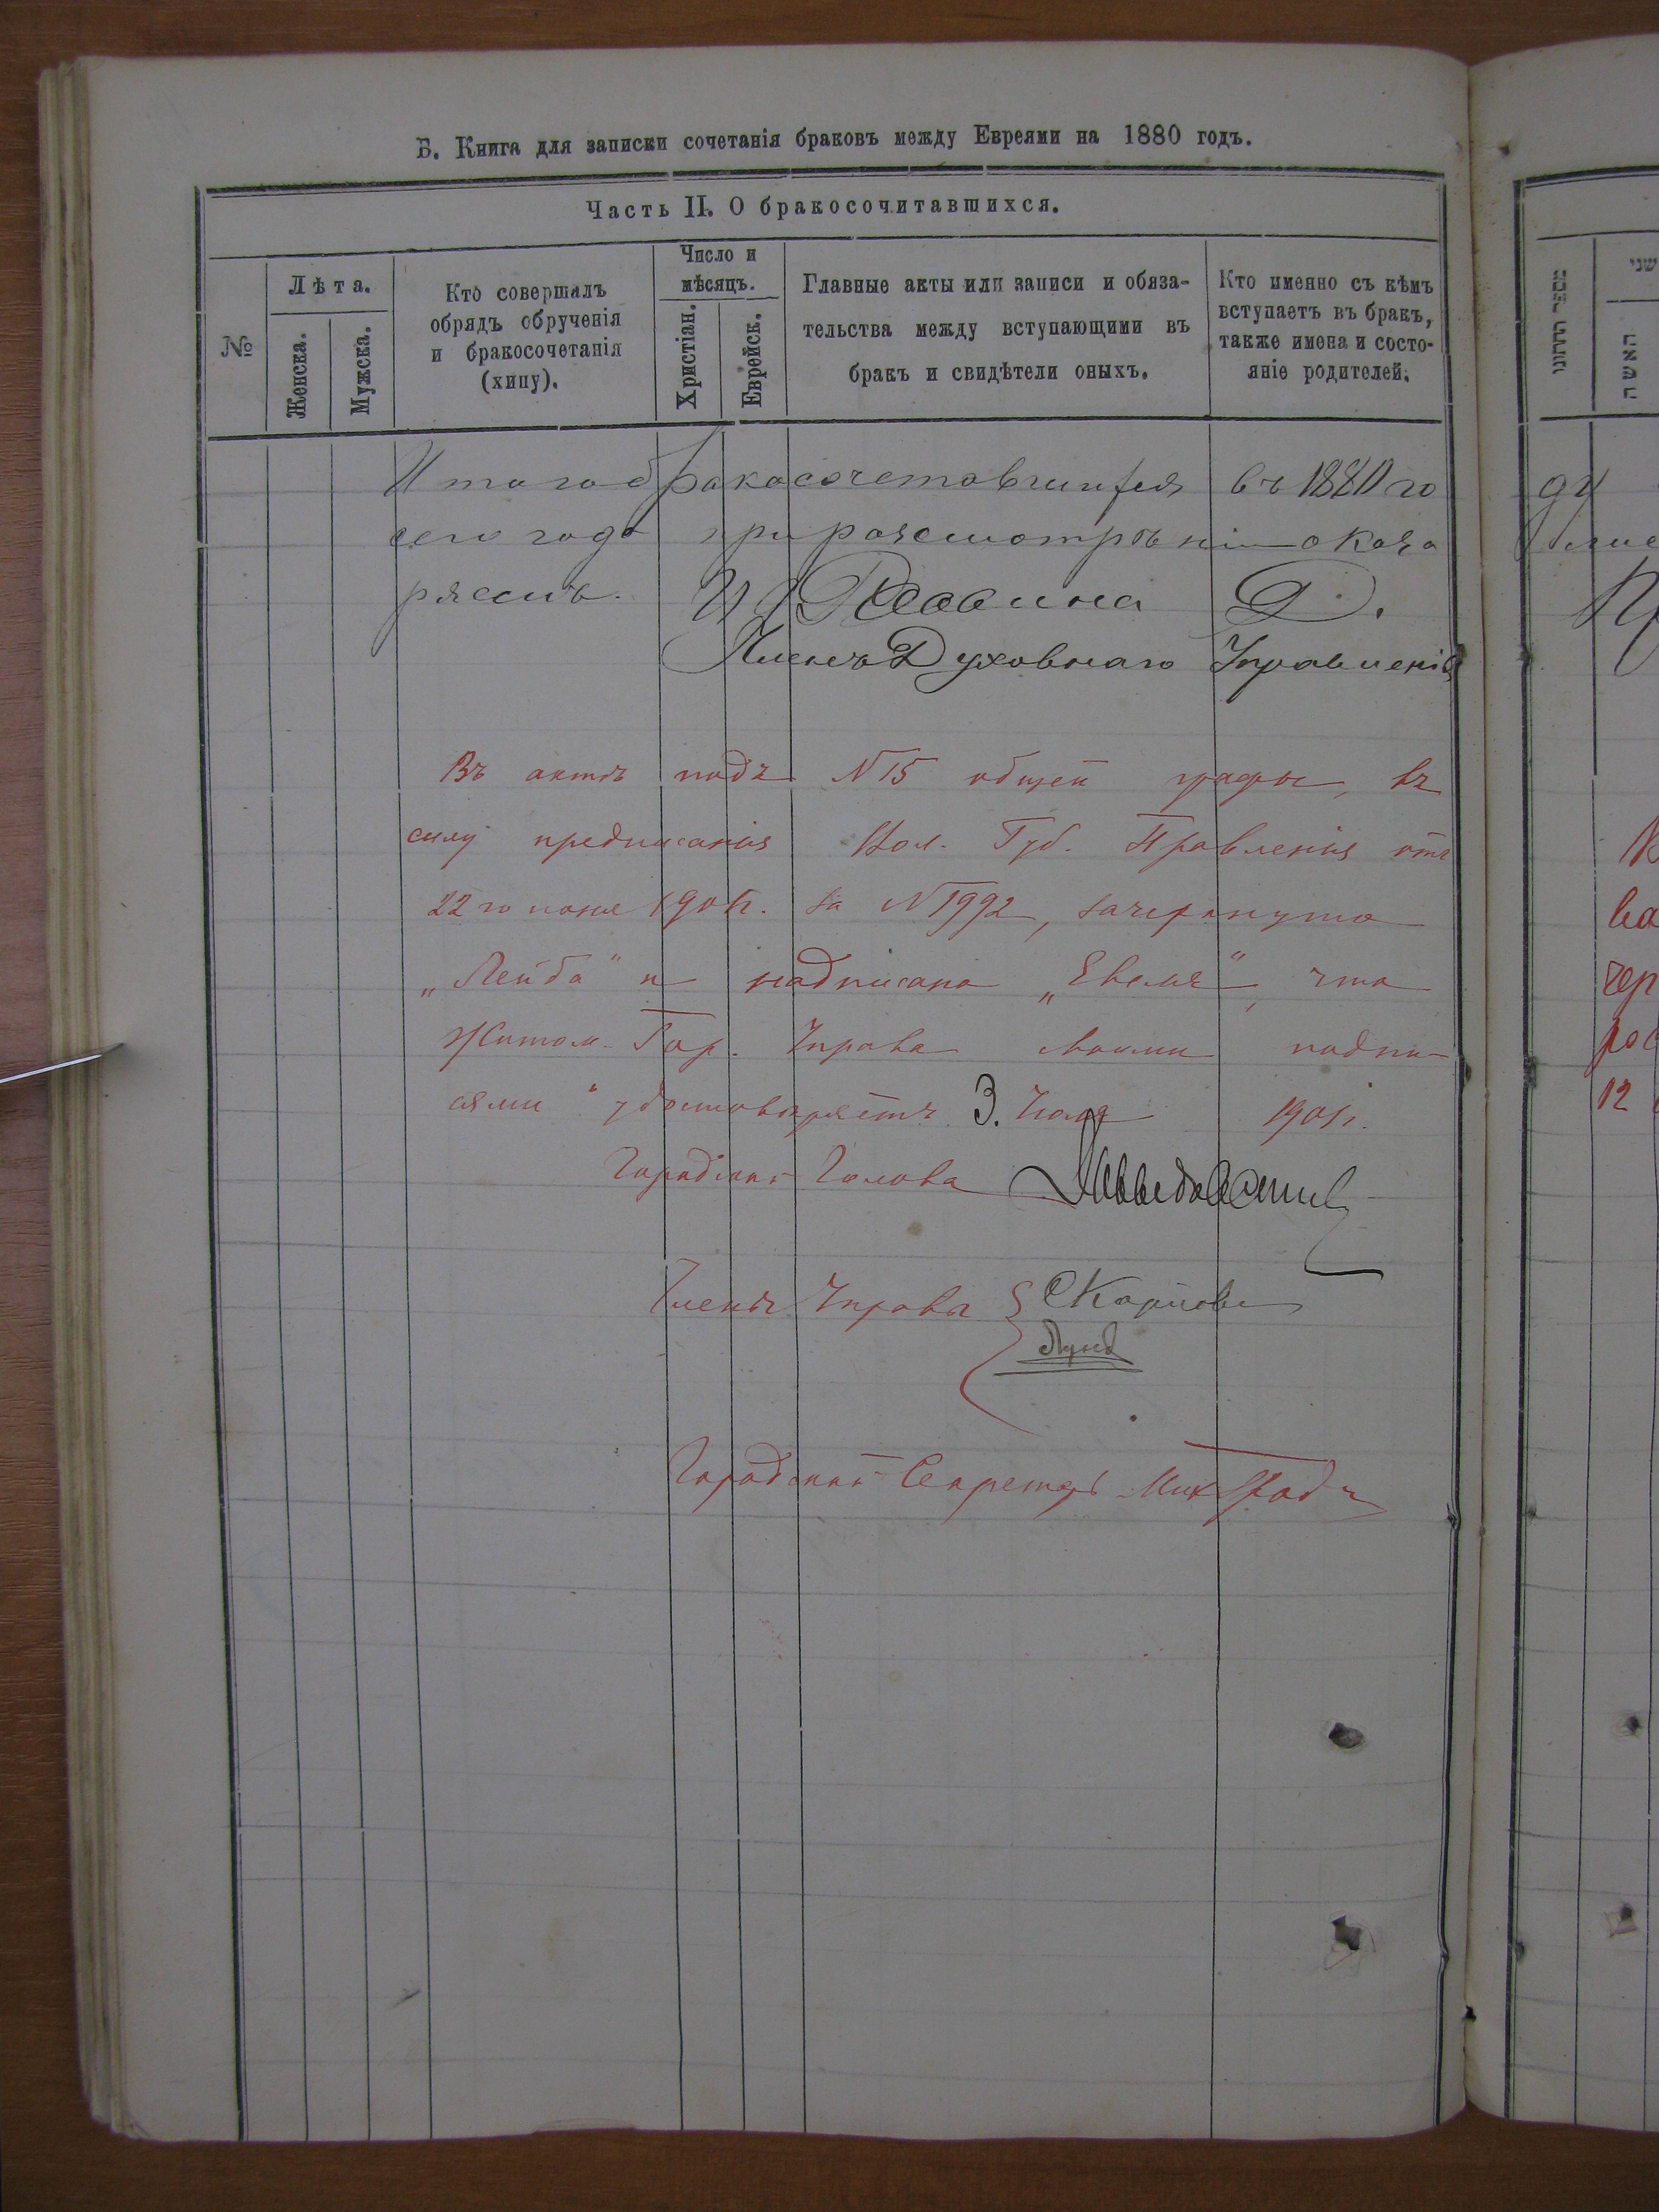 Б. Книга для записки сочетанія браковъ между Евреями на 1880 годъ.
Часть II. О бракосочитавшихся.
№
Лѣта.
Женска.
Мужска.
Кто совершалъ
обрядъ обрученія
и бракосочетанія
(хипу).
Число и
мѣсяцъ.
Христіан.
Еврейск.
Главные акты или записи и обяза-
тельства между вступающими въ
бракъ и свидѣтели оныхъ.
Кто именно съ кѣмъ
вступаетъ въ бракъ,
также имена и состо-
яніе родителей.
Итого бракосочетавшихся въ 1880 го
сего года при разсмотрѣніи оказа
Раввина
Духовнаго Управленія
Въ актѣ подъ № 15 общей графы, въ
силу предписанія Вол. Губ. Правленія отъ
22 го іюня 1901г. за № 1992, зачеркнуто
„Лейба" и надписано „Евель", что
Житом. Гор. Управа своими подпи-
сями удостовѣряетъ 3. Іюля 1901г.
Городской Голова
Члены Управы
Городской Секретарь
מספר החתונו
שני
האשה
ду